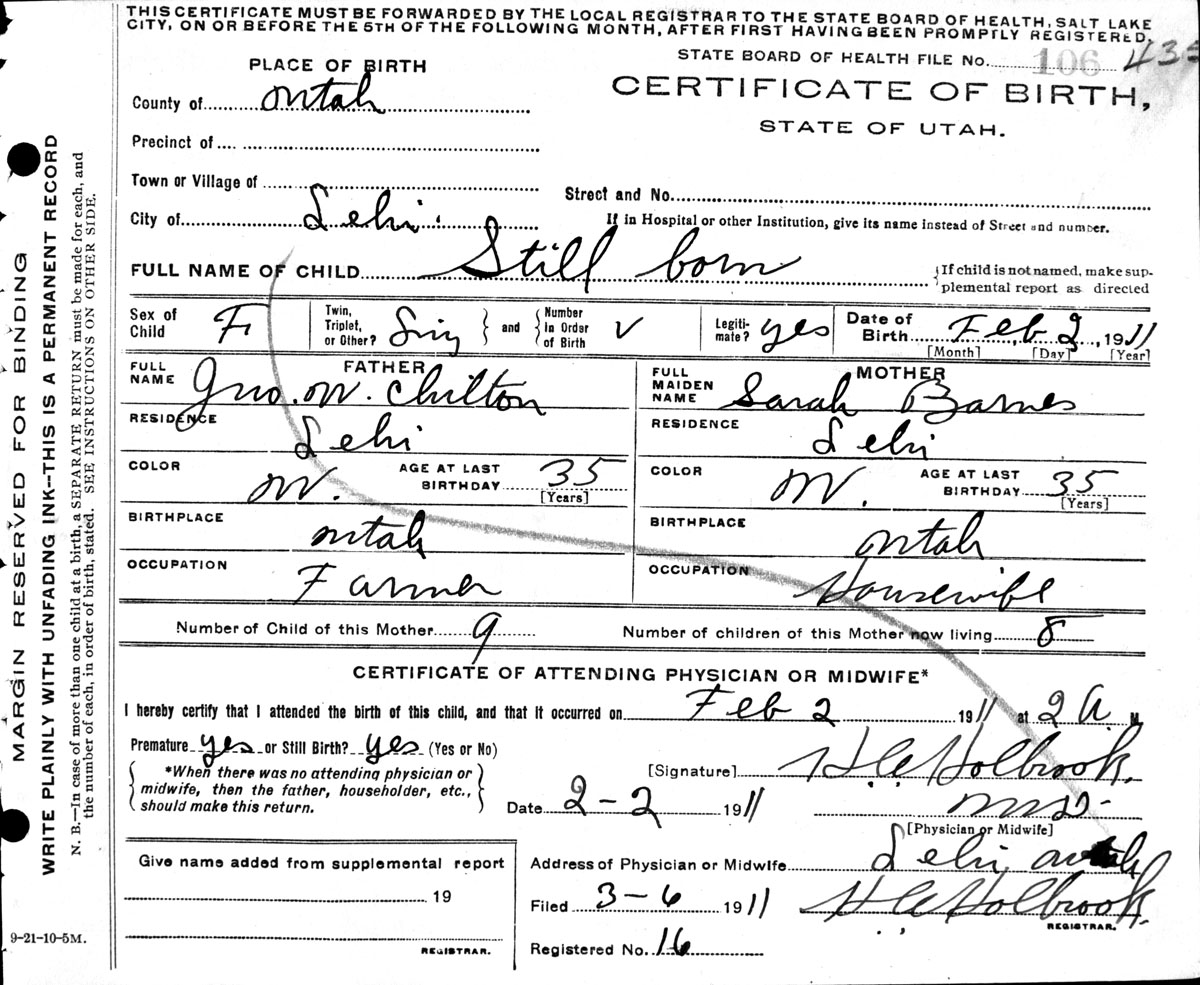 THIS CERTIFICATE MUST BE FORWARDED BY THE LOCAL REGISTRAR TO THE STATE BOARD OF HEALTH, SALT LAKE
CITY, ON OR BEFORE THE 5TH OF THE FOLLOWING MONTH, AFTER FIRST HAVING BEEN PROMPTLY REGISTERED.
STATE BOARD OF HEALTH FILE No. 106 435
PLACE OF BIRTH
CERTIFICATE OF BIRTH,
STATE OF UTAH.
County of Utah
Precinct of
Town or Village of
Street and No.
City of Lehi
If in Hospital or other Institution, give its name instead of Street and number.
FULL NAME OF CHILD Still born
If child is not named, make sup-
plemental report as directed
Sex of Child F
Twin, Triplet, or Other? Sing and Number in Order of Birth
Legiti-mate? yes
Date of Birth Feb 2, 1911
[Month] [Day] [Year]
FATHER
FULL NAME Jno. W. Chilton
MOTHER
FULL MAIDEN NAME Sarah Barnes
RESIDENCE Lehi
RESIDENCE Lehi
COLOR W. AGE AT LAST BIRTHDAY 35 [Years]
COLOR W. AGE AT LAST BIRTHDAY 35 [Years]
BIRTHPLACE Utah
BIRTHPLACE Utah
OCCUPATION Farmer
OCCUPATION Housewife
Number of Child of this Mother 9 Number of children of this Mother now living 8
CERTIFICATE OF ATTENDING PHYSICIAN OR MIDWIFE*
I hereby certify that I attended the birth of this child, and that it occurred on Feb 2 1911 at 2 A M.
Premature yes or Still Birth? yes (Yes or No)
*When there was no attending physician or
midwife, then the father, householder, etc.,
should make this return.
[Signature] H C Holbrook.
Date 2-2 1911
M.D.
[Physician or Midwife]
Give name added from supplemental report
19
REGISTRAR.
Address of Physician or Midwife Lehi, Utah
Filed 3-6 1911 H C Holbrook.
REGISTRAR.
Registered No. 16
9-21-10-5M.
MARGIN RESERVED FOR BINDING
WRITE PLAINLY WITH UNFADING INK--THIS IS A PERMANENT RECORD
N. B.—In case of more than one child at a birth, a SEPARATE RETURN must be made for each, and
the number of each, in order of birth, stated. SEE INSTRUCTIONS ON OTHER SIDE.